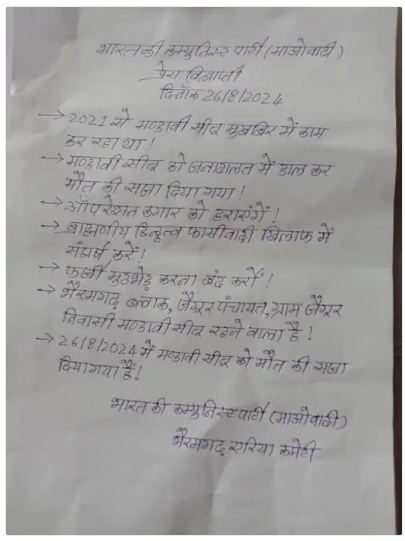 भारत की कम्युनिस्ट पार्टी (माओवादी)
प्रेस विज्ञाप्ती
दिनाँक 26/8/2024
→ 2021 से मण्डावी सीदू मुखबिर में काम
कर रहा था!
→ मण्डावी सीदू को जनाबालत में डाल कर
मौत की सजा दिया गया!
→ ऑपरेशन कगार को हराएंगें!
→ ब्राह्मणीय हिन्दुत्व फासीवादी खिलाफ में
संघर्ष करें!
→ फर्जी मुठभेड़ करना बंद करों!
→ भैरमगढ़ ब्लाक, जैगूर पंचायत, ग्राम जैगूर
निवासी मण्डावी सीदू रहने वाला है!
→ 26/8/2024 में मण्डावी सीदू को मौत की सजा
दिया गया हैं!
भारत की कम्युनिस्ट पार्टी (माओवादी)
भैरमगढ़ एरिया कमेटी